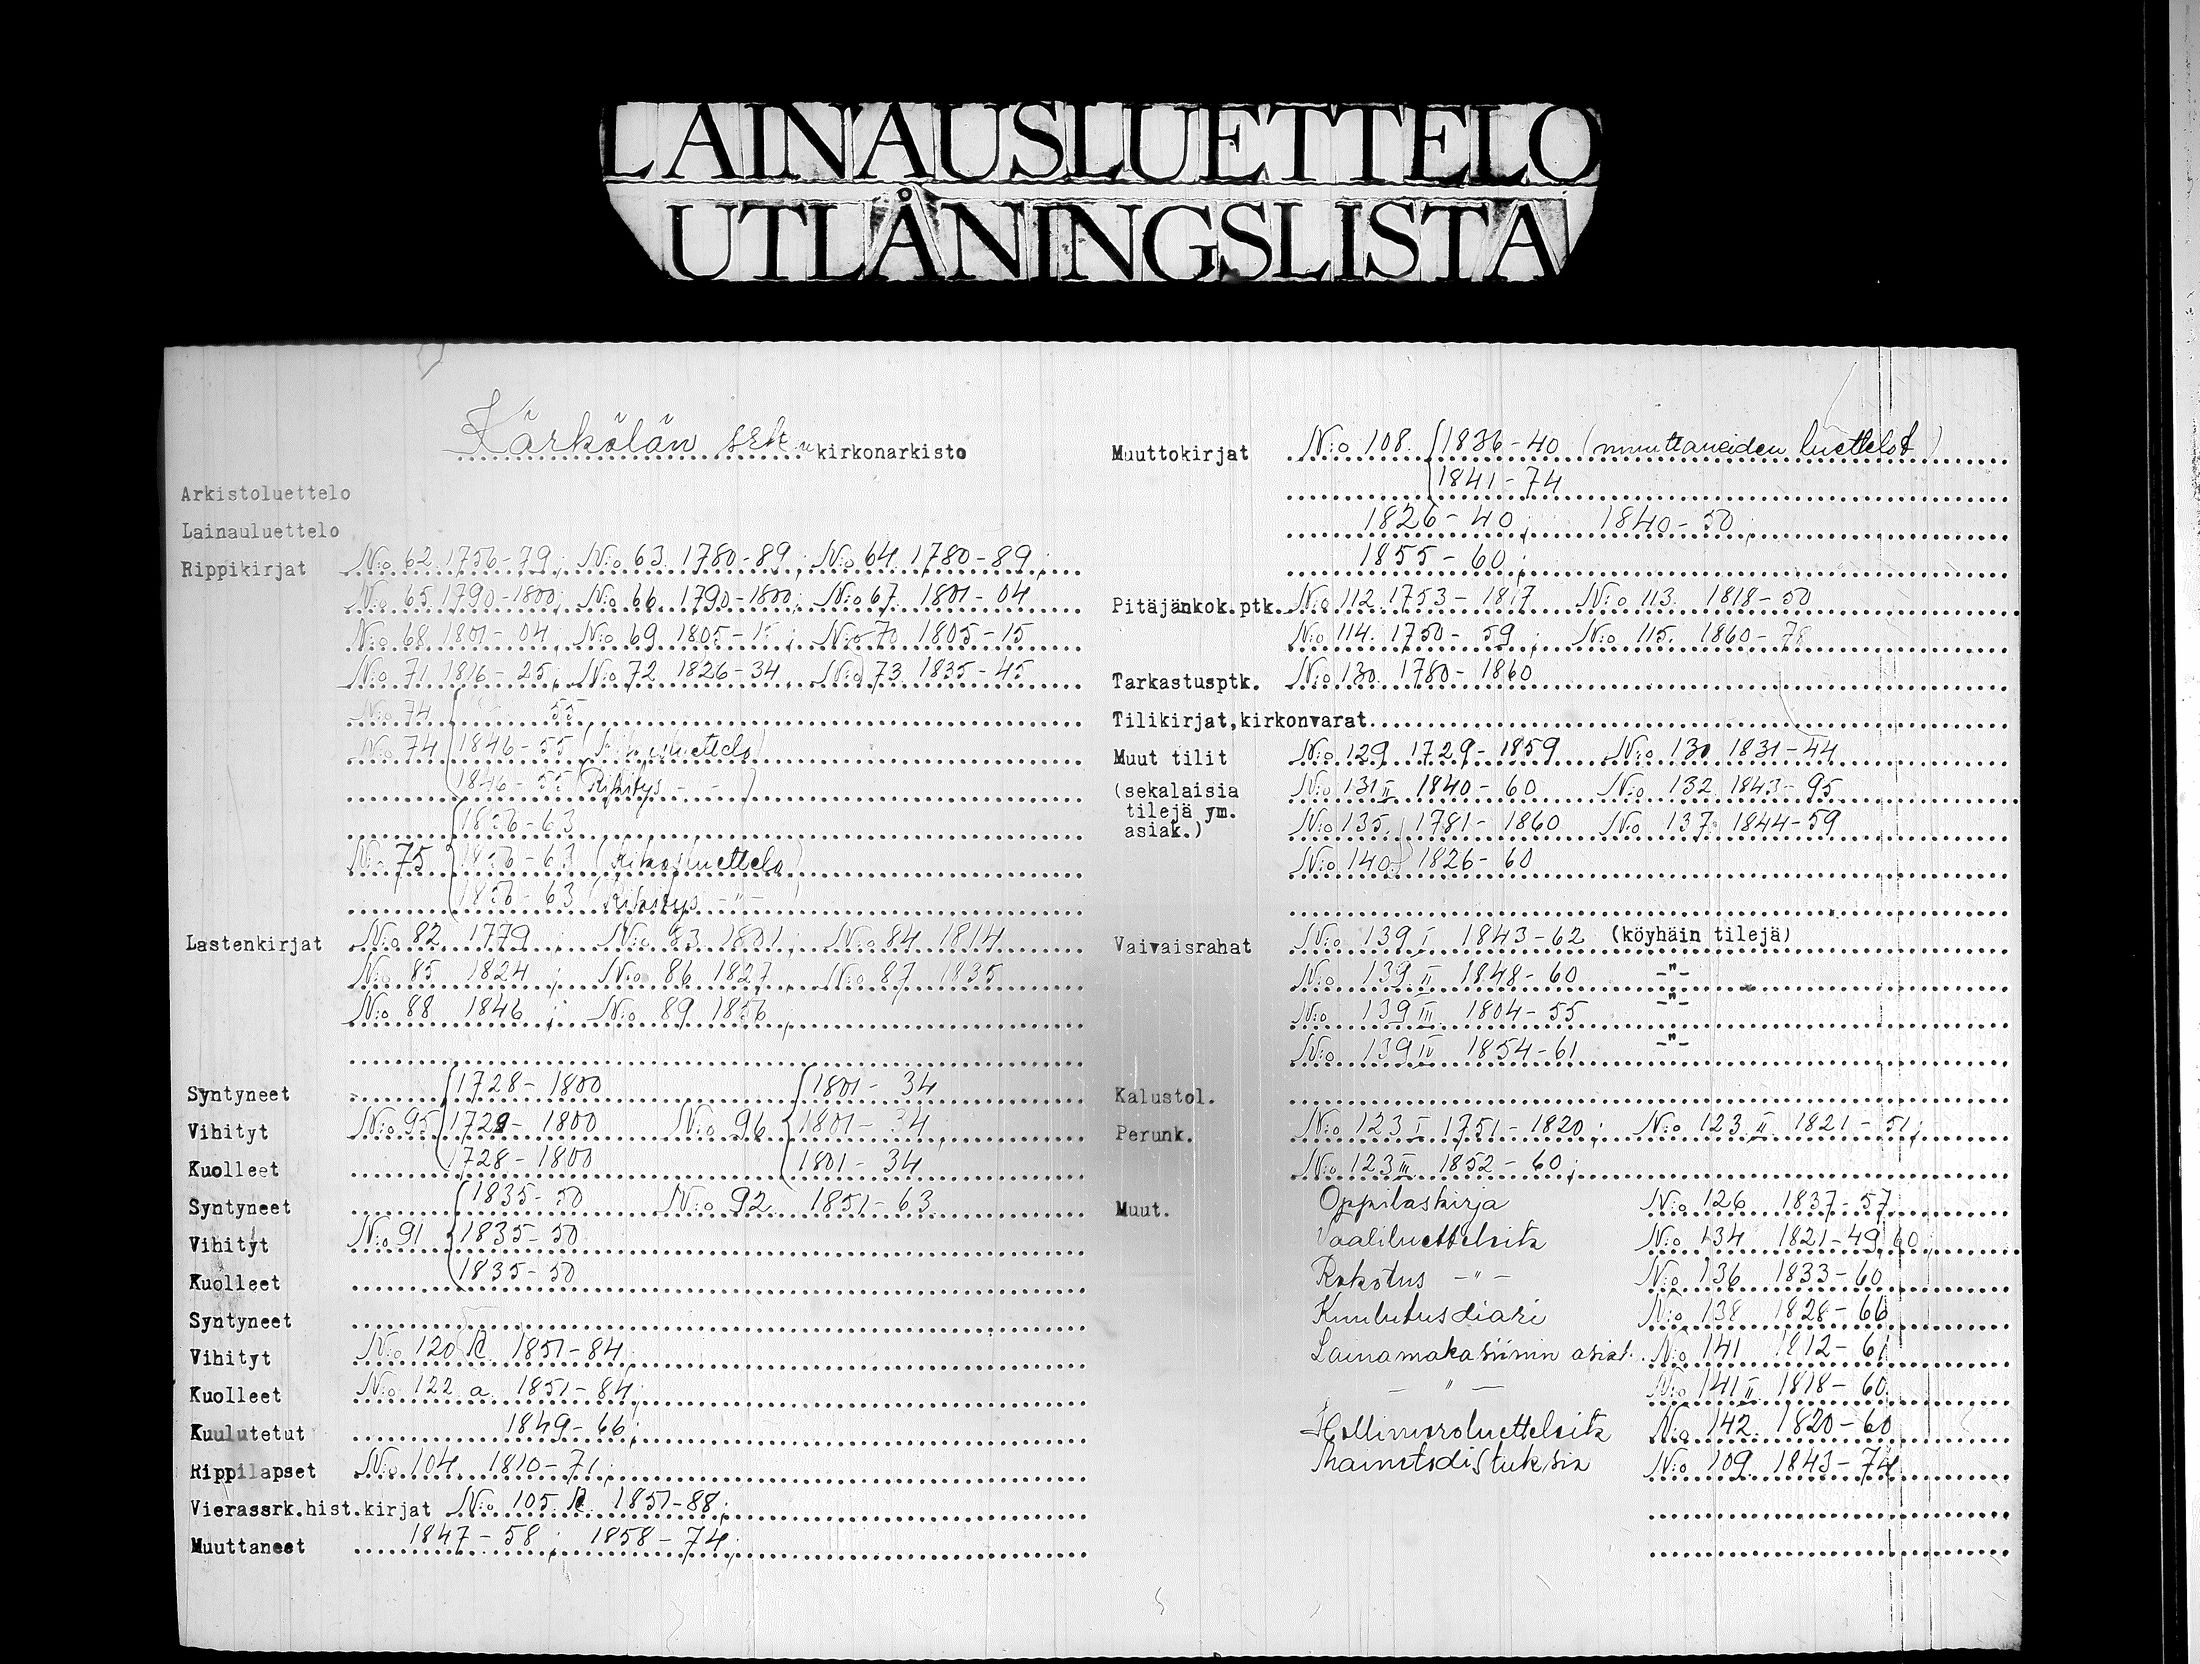 LAINAUSLUETTELO
UTLÅNINGSLISTA
Kärkölän srk:n kirkonarkisto
Arkistoluettelo
Lainauluettelo
Rippikirjat N:o 62 1756-79; N:o 63 1780-89; N:o 64 1780-89;
N:o 65 1790-1800; N:o 66 1790-1800; N:o 67 1801-04
N:o 68 1801-04; N:o 69 1805-15; N:o 70 1805-15
N:o 71 1816-25; N:o 72 1826-34; N:o 73 1835-45
N:o 74 55
N:o 74 1846-55 (Rikosluettelo)
1846-55 (Ripitys - " - )
1856-63
N:o 75 1856-63 (Rikosluettelo)
1856-63 (Ripitys -"-
Lastenkirjat N:o 82 1779; N:o 83 1801; N:o 84 1814
N:o 85 1824; N:o 86 1827; N:o 87 1835
N:o 88 1846; N:o 89 1856;
Syntyneet 1728-1800 1801-34
Vihityt N:o 95 1729-1800 N:o 96 1801-34;
Kuolleet 1728-1800 1801-34
Syntyneet 1835-50 N:o 92 1851-63
Vihityt N:o 91 1835-50
Kuolleet 1835-50
Syntyneet
Vihityt N:o 120 1851-84;
Kuolleet N:o 122 a. 1851-84;
Kuulutetut 1849-66;
Rippilapset N:o 104 1810-71;
Vierassrk.hist.kirjat N:o 105 1851-88;
Muuttaneet 1847-58; 1858-74;
Muuttokirjat N:o 108. 1836-40 (muuttaneiden luettelot)
1841-74
1826-40; 1840-50;
1855-60;
Pitäjänkok.ptk. N:o 112 1753-1817 N:o 113. 1818-50
N:o 114. 1750-59; N:o 115. 1860-78
Tarkastusptk. N:o 130. 1780-1860
Tilikirjat,kirkonvarat
Muut tilit N:o 129 1729-1859 N:o 130 1831-44
(sekalaisia N:o 131 II 1840-60 N:o 132 1843-95
tilejä ym.
asiak.) N:o 135. 1781-1860 N:o 137 1844-59
N:o 140 1826-60
Vaivaisrahat N:o 139 I 1843-62 (köyhäin tilejä)
N:o 139 II 1848-60 -"-
N:o 139 III 1804-55 -"-
N:o 139 IV 1854-61 -"-
Kalustol.
Perunk. N:o 123 I 1751-1820; N:o 123 II 1821-51;
N:o 123 III 1852-60;
Muut. Oppilaskirja N:o 126 1837-57
Vaaliluetteloita N:o 134 1821-49, 60;
Rokotus -"- N:o 136 1833-60
Kuulutusdiari N:o 138 1828-66
Lainamakasiinin asiat. N:o 141 1812-61
- " - N:o 141 II 1818-60
N:o 142. 1820-60
N:o 109 1843-74